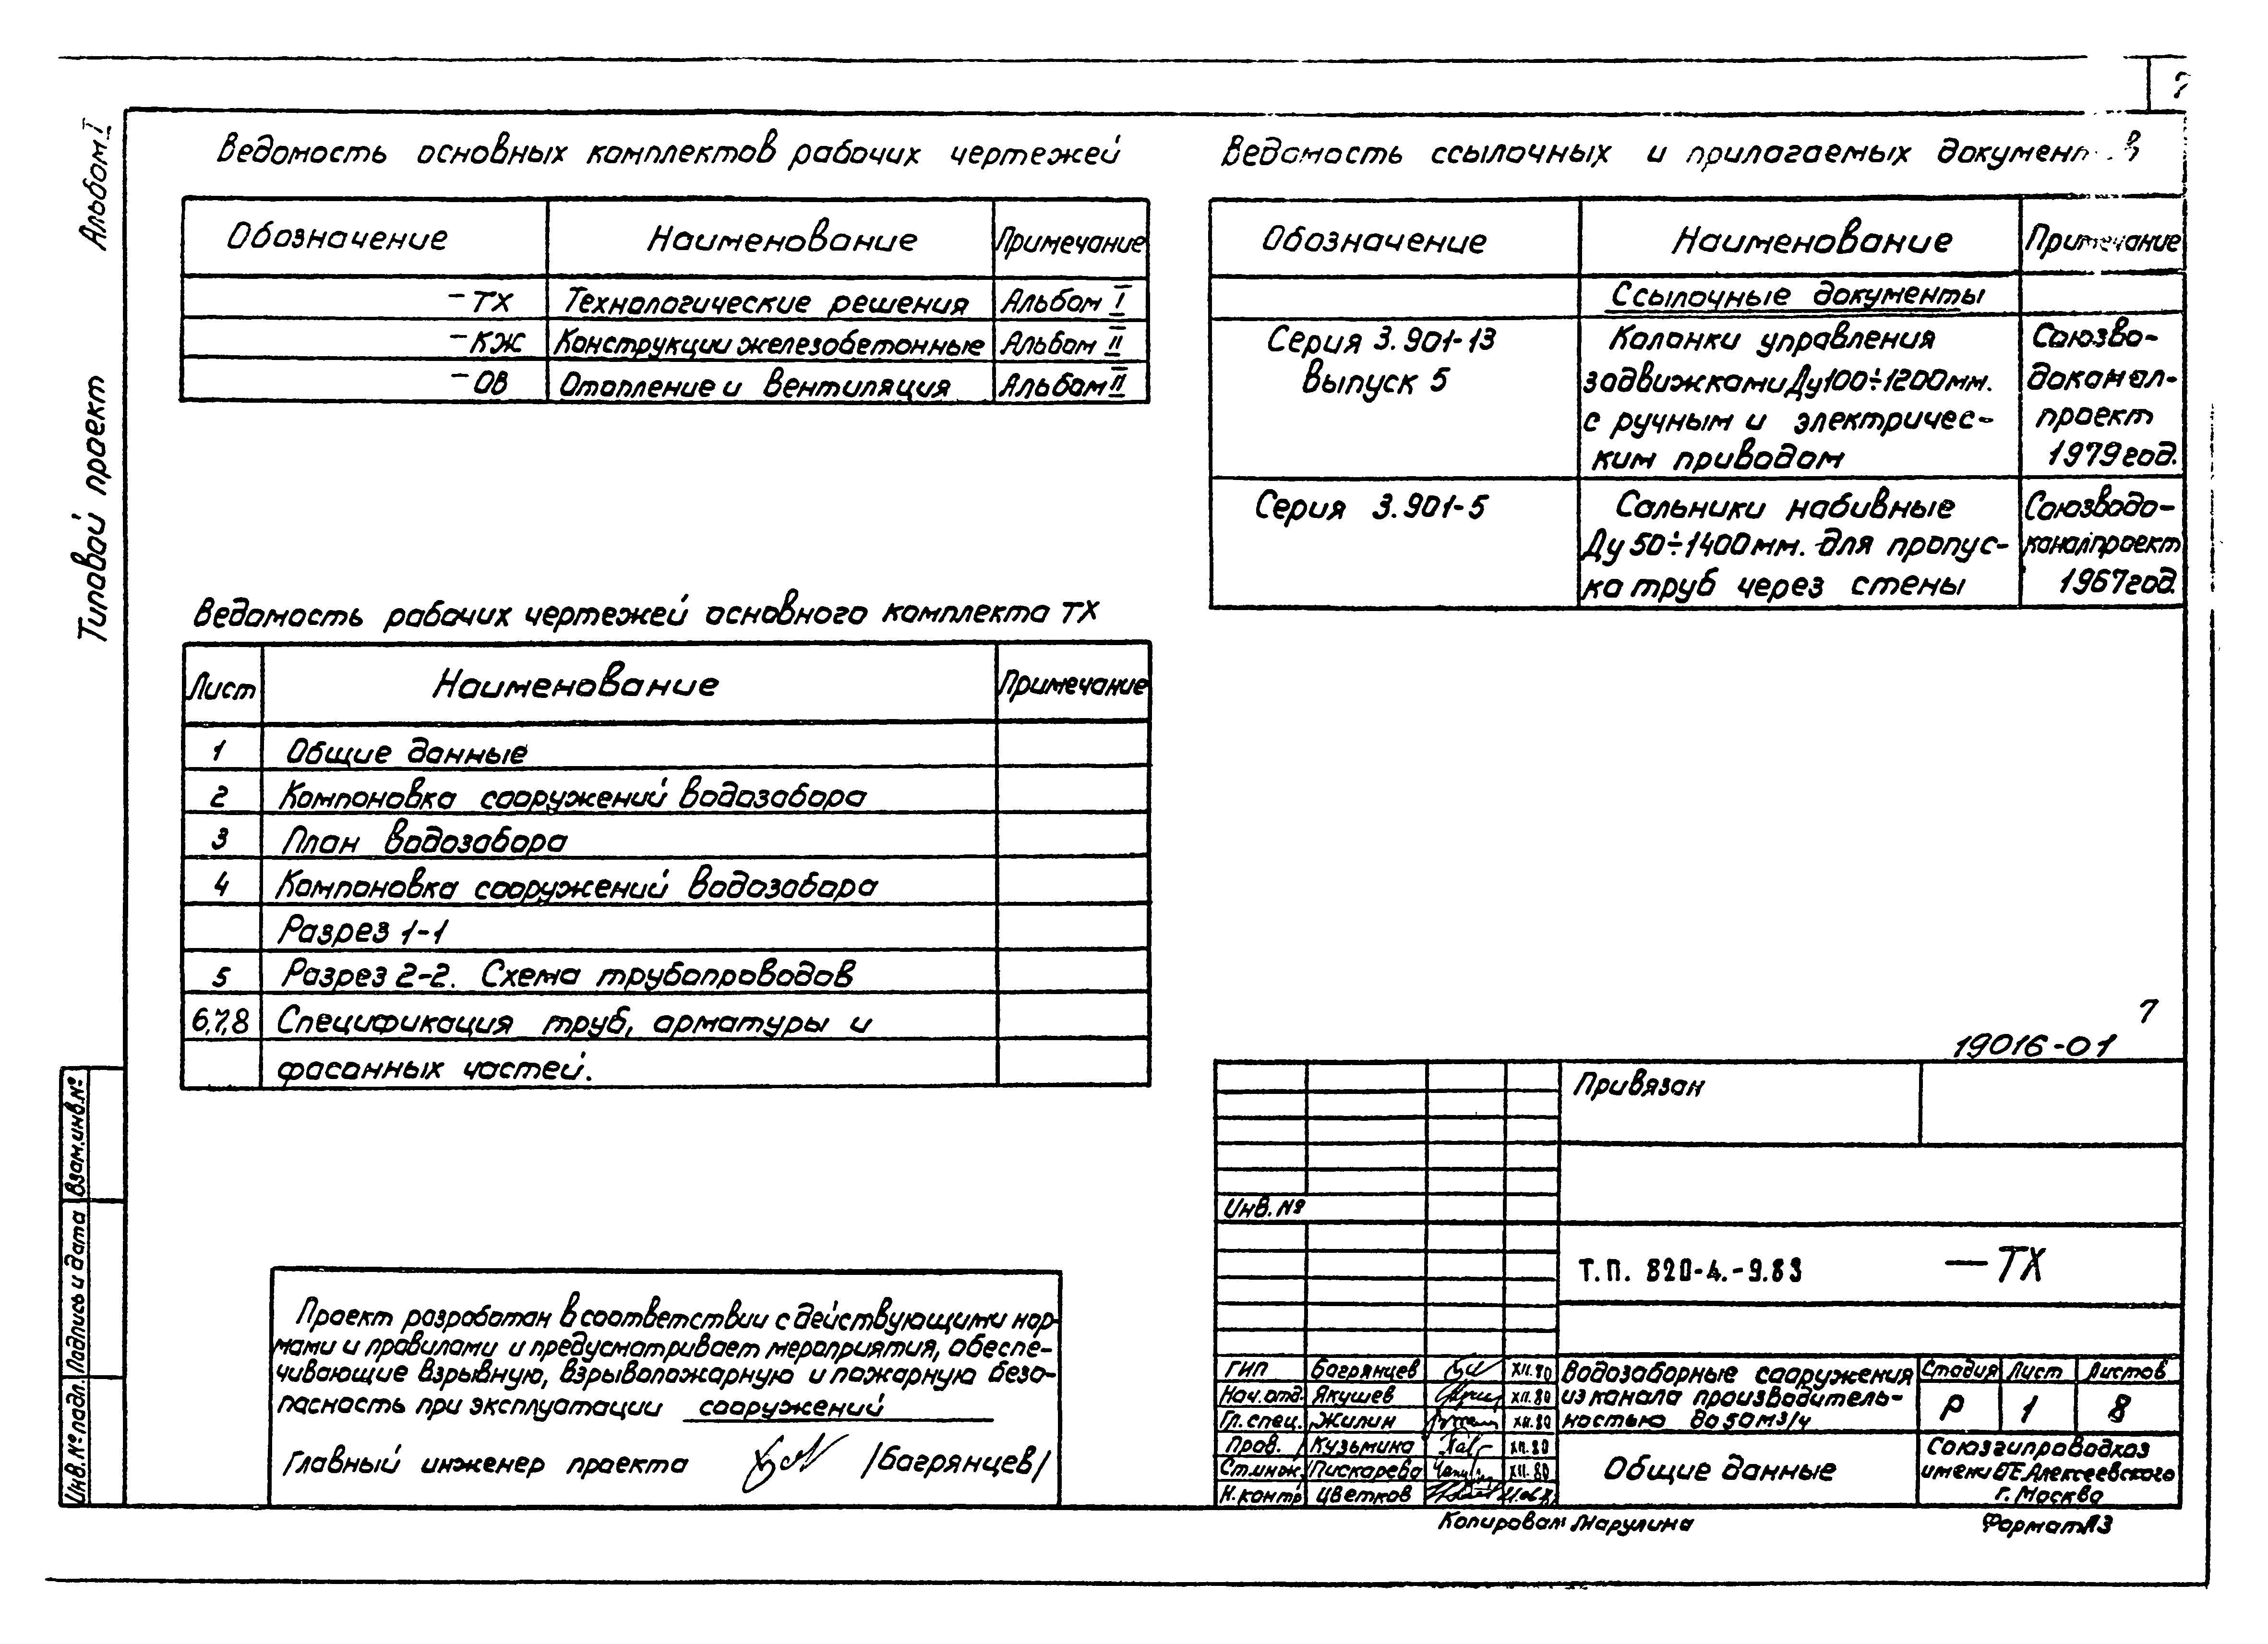 7
Альбом I
Типовой проект
Ведомость основных комплектов рабочих чертежей
Обозначение Наименование Примечание
-ТХ Технологические решения Альбом I
-КЖ Конструкции железобетонные Альбом II
-ОВ Отопление и вентиляция Альбом II
Ведомость рабочих чертежей основного комплекта ТХ
Лист Наименование Примечание
1 Общие данные
2 Компоновка сооружений водозабора
3 План водозабора
4 Компоновка сооружений водозабора
Разрез 1-1
5 Разрез 2-2. Схема трубопроводов
6,7,8 Спецификация труб, арматуры и
фасонных частей.
Проект разработан в соответствии с действующими нор-
мами и правилами и предусматривает мероприятия, обеспе-
чивающие взрывную, взрывопожарную и пожарную безо-
пасность при эксплуатации сооружений
Главный инженер проекта /Багрянцев/
Ведомость ссылочных и прилагаемых документов
Обозначение Наименование Примечание
Ссылочные документы
Серия 3.901-13 Колонки управления Союзво-
выпуск 5 задвижками Ду100÷1200мм. доканал-
с ручным и электричес- проект
ким приводом 1979год.
Серия 3.901-5 Сальники набивные Союзводо-
Ду 50÷1400мм. для пропус- каналпроект
ка труб через стены 1967год.
7
19016-01
Привязан
Инв.№
Т.П. 820-4.-9.83 —ТХ
ГИП Багрянцев XII.80
Нач.отд. Якушев XII.80
Гл.спец. Жилин XII.80
Пров. Кузьмина XII.80
Ст.инж. Пискарева XII.80
Н.контр Цветков
Водозаборные сооружения
из канала производитель-
ностью до 50м3/ч
Стадия Лист Листов
Р 1 8
Общие данные
Союзгипроводхоз
имени Е.Е.Алексеевского
г.Москва
Копировал: Марулина
Формат А3
Взам.инв.№
Подпись и дата
Инв.№ подл.